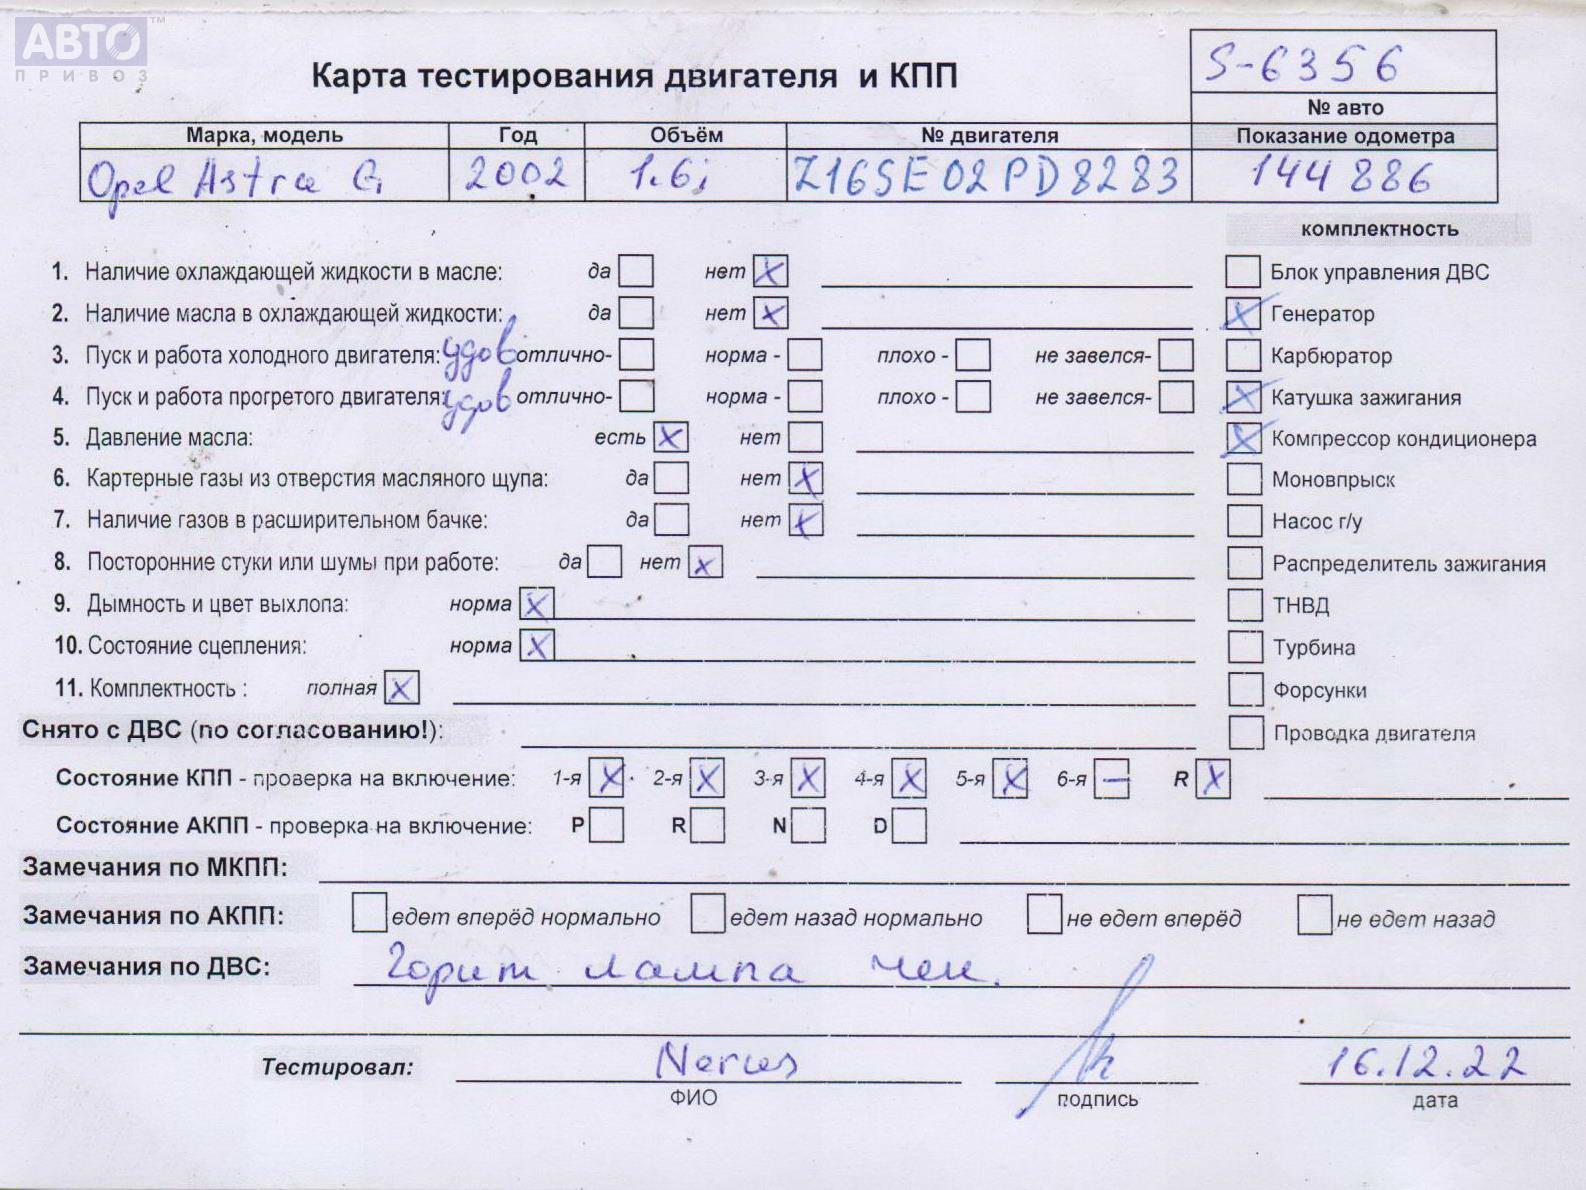 АВТО™
ПРИВОЗ
S-6356
Карта тестирования двигателя и КПП
№ авто
Марка, модель Год Объём № двигателя Показание одометра
Opel Astra G 2002 1.6i Z16SE02PD8283 144 886
комплектность
1. Наличие охлаждающей жидкости в масле: да нет X
Блок управления ДВС
2. Наличие масла в охлаждающей жидкости: да нет X
X Генератор
3. Пуск и работа холодного двигателя: удов отлично- норма - плохо - не завелся-
Карбюратор
4. Пуск и работа прогретого двигателя: удов отлично- норма - плохо - не завелся-
X Катушка зажигания
5. Давление масла: есть X нет
X Компрессор кондиционера
6. Картерные газы из отверстия масляного щупа: да нет X
Моновпрыск
7. Наличие газов в расширительном бачке: да нет X
Насос г/у
8. Посторонние стуки или шумы при работе: да нет X
Распределитель зажигания
9. Дымность и цвет выхлопа: норма X
ТНВД
10. Состояние сцепления: норма X
Турбина
11. Комплектность : полная X
Форсунки
Снято с ДВС (по согласованию!):
Проводка двигателя
Состояние КПП - проверка на включение: 1-я X 2-я X 3-я X 4-я X 5-я X 6-я — R X
Состояние АКПП - проверка на включение: P R N D
Замечания по МКПП:
Замечания по АКПП: едет вперёд нормально едет назад нормально не едет вперёд не едет назад
Замечания по ДВС: Горит лампа чек.
Тестировал: 16.12.22
ФИО подпись дата